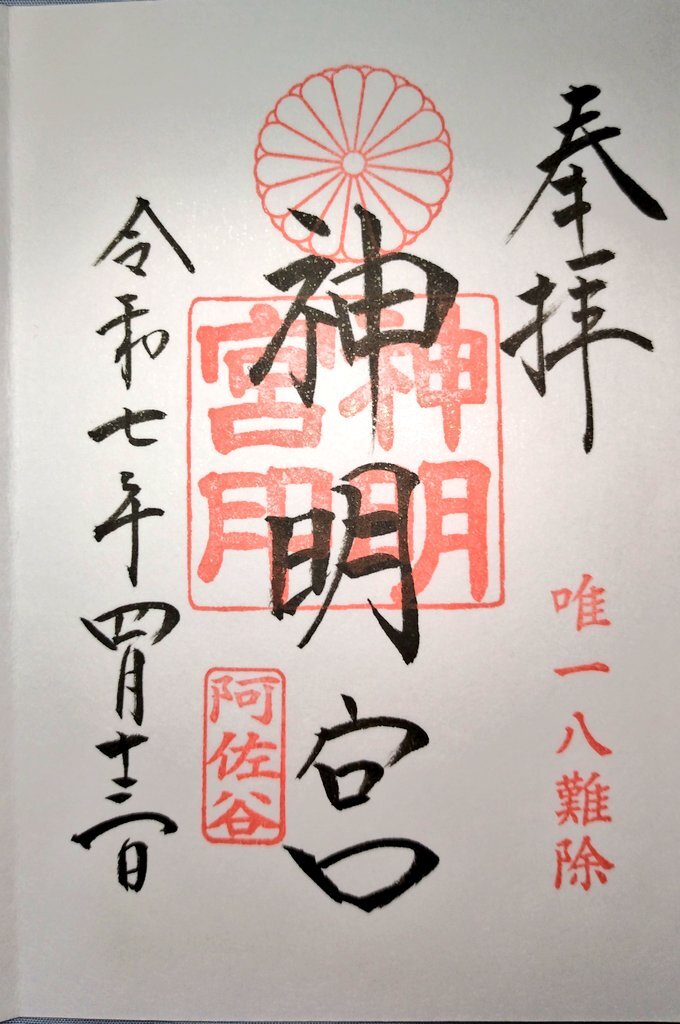 奉拝
唯一八難除
神明宮
神明
宮印
阿佐谷
令和七年四月十三日